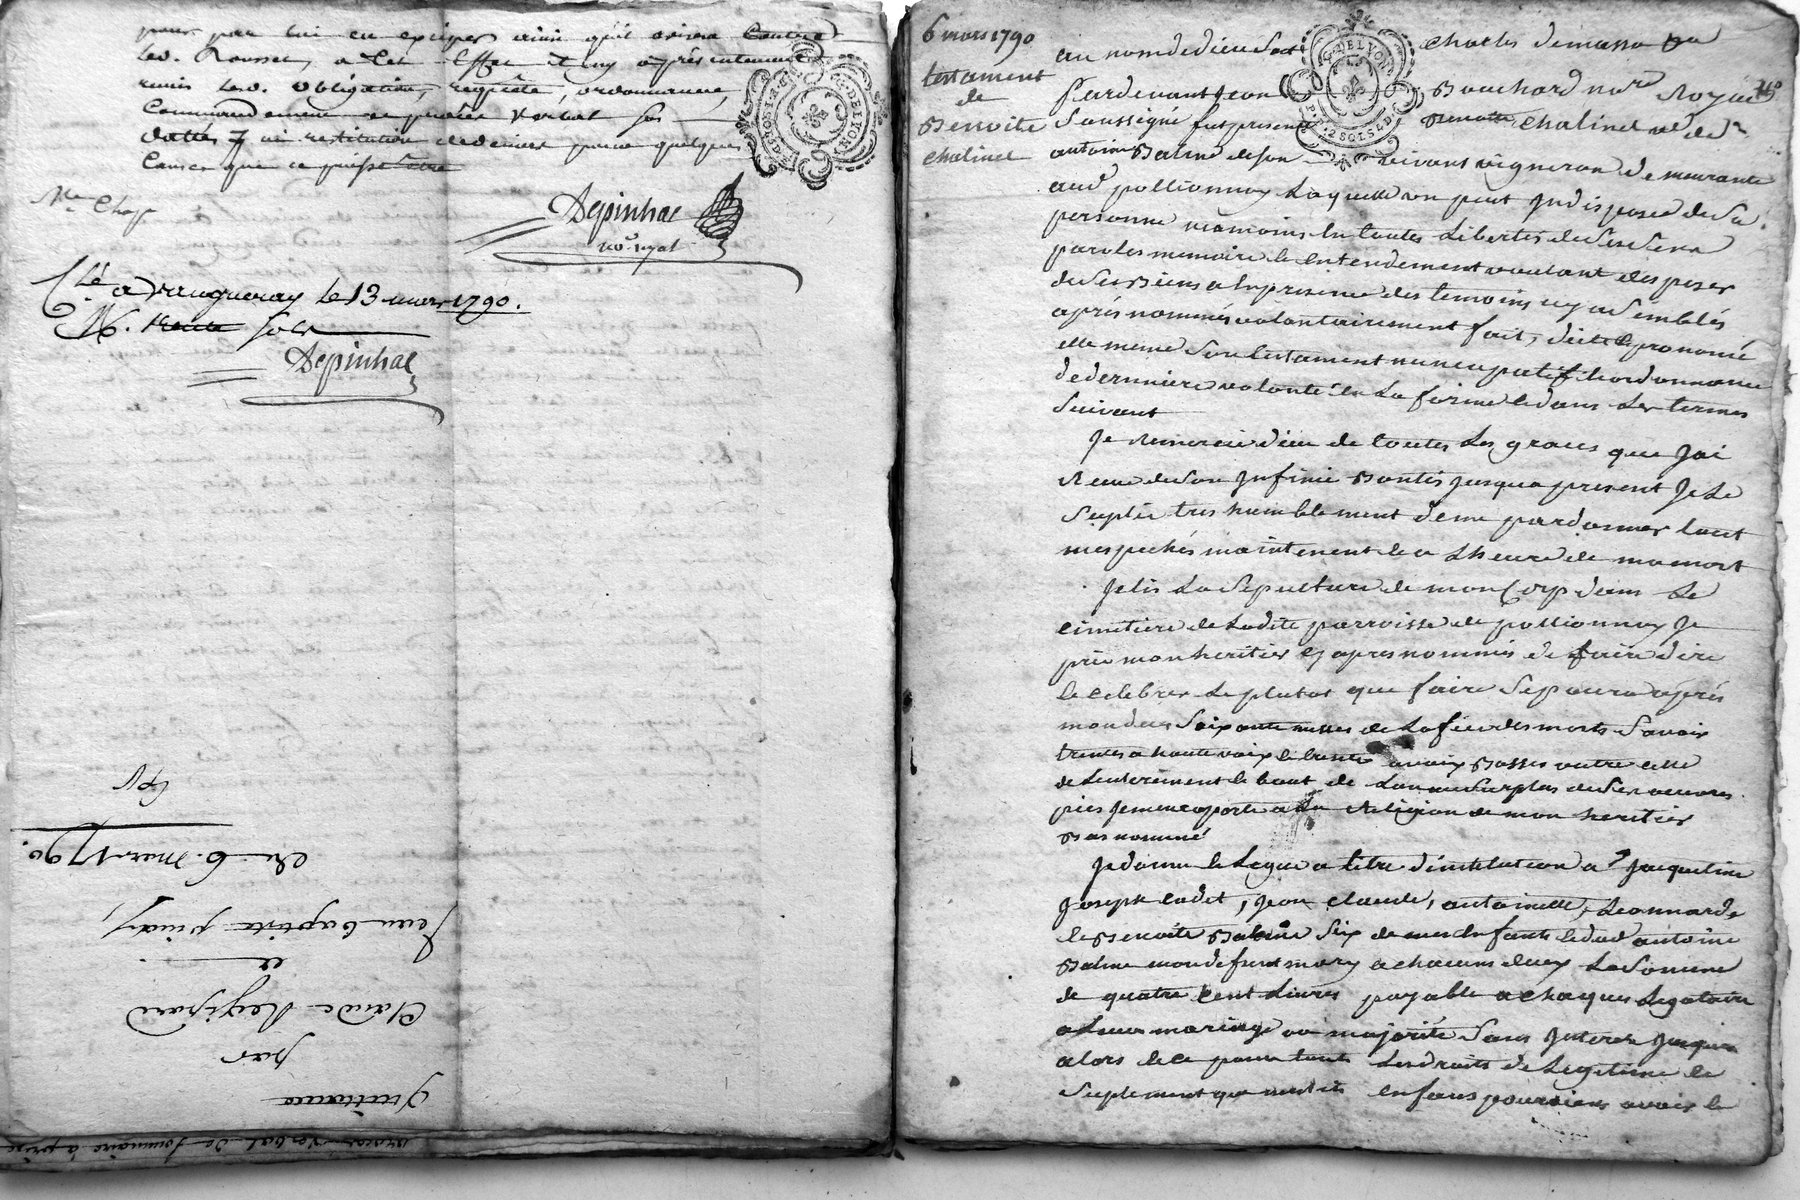 pour par lui en exciper ainsi qu'il avisera contre
led. Rousset, a cet effet il luy a présentement
remis lesd. obligation, requête, ordonnance,
Commandement
dattés
Causes que ce puisse être
Depinhac
no.re royal
a Vaugneray le 13 mars 1790.
Depinhac
G. DE LYON
6 mars 1790
testament
de
Benoite
chalinel
au nom de dieu soit
Charles demasso
Pardevant Jean
Bouchard no.re Royal
soussigné fut presente
Benoite Chalinel ve de
antoine Balme de son vivant vigneron demeurante
aud pollionnay Laquelle un peut Indisposée de sa
personne neamoins En toutes Libertés de ses sens
paroles memoire et entendement voulant disposer
de ses Biens a En presence des temoins cy assemblés
après nommés volontairement fait, dicté et prononcé
elle meme son testament nuncupatif et ordonnance
de derniere volonté En La forme et dans Les termes
suivant
Je Remercie dieu de toutes Les graces que Jai
Recue de son Infinie Bontés Jusqua present Je Le
suplie tres humblement de me pardonner tout
mes pechés maintenent et a Lheure de ma mort
Jelis La sepulture de mon Corp dans Le
cimetiere de Ladite parroisse de pollionnay Je
prie mon heritier cy apres nommés de faire dire
et celebrer Le plutot que faire se poura après
mon deces soixante messes de Lofice des morts savoir
trentes a haute voix et trente a voix Basses outre celle
de Lenterement et bout de Lan au surplus de ses oeuvres
pies Je men raporte a La Religion de mon heritier
Bas nommé
Je donne et Legue a titre dinstitution a Jacqueline
Joseph cadet, Jean claude, antoinette, Leonnarde
et Benoite Balme six de mes Enfants et dud antoine
Balme mon defunt mary a chacuns deux La somme
de quatre cent Livres payable a chaques Legataire
a Leur mariage ou majorité sans Interet Jusqua
alors et ce pour tout Les droits de Legitime et
suplement que mesdits enfans pouroient avoir et
du 6. mars 1790.
Jean baptiste pinay,
et
Claude Regipard
par
Quittance